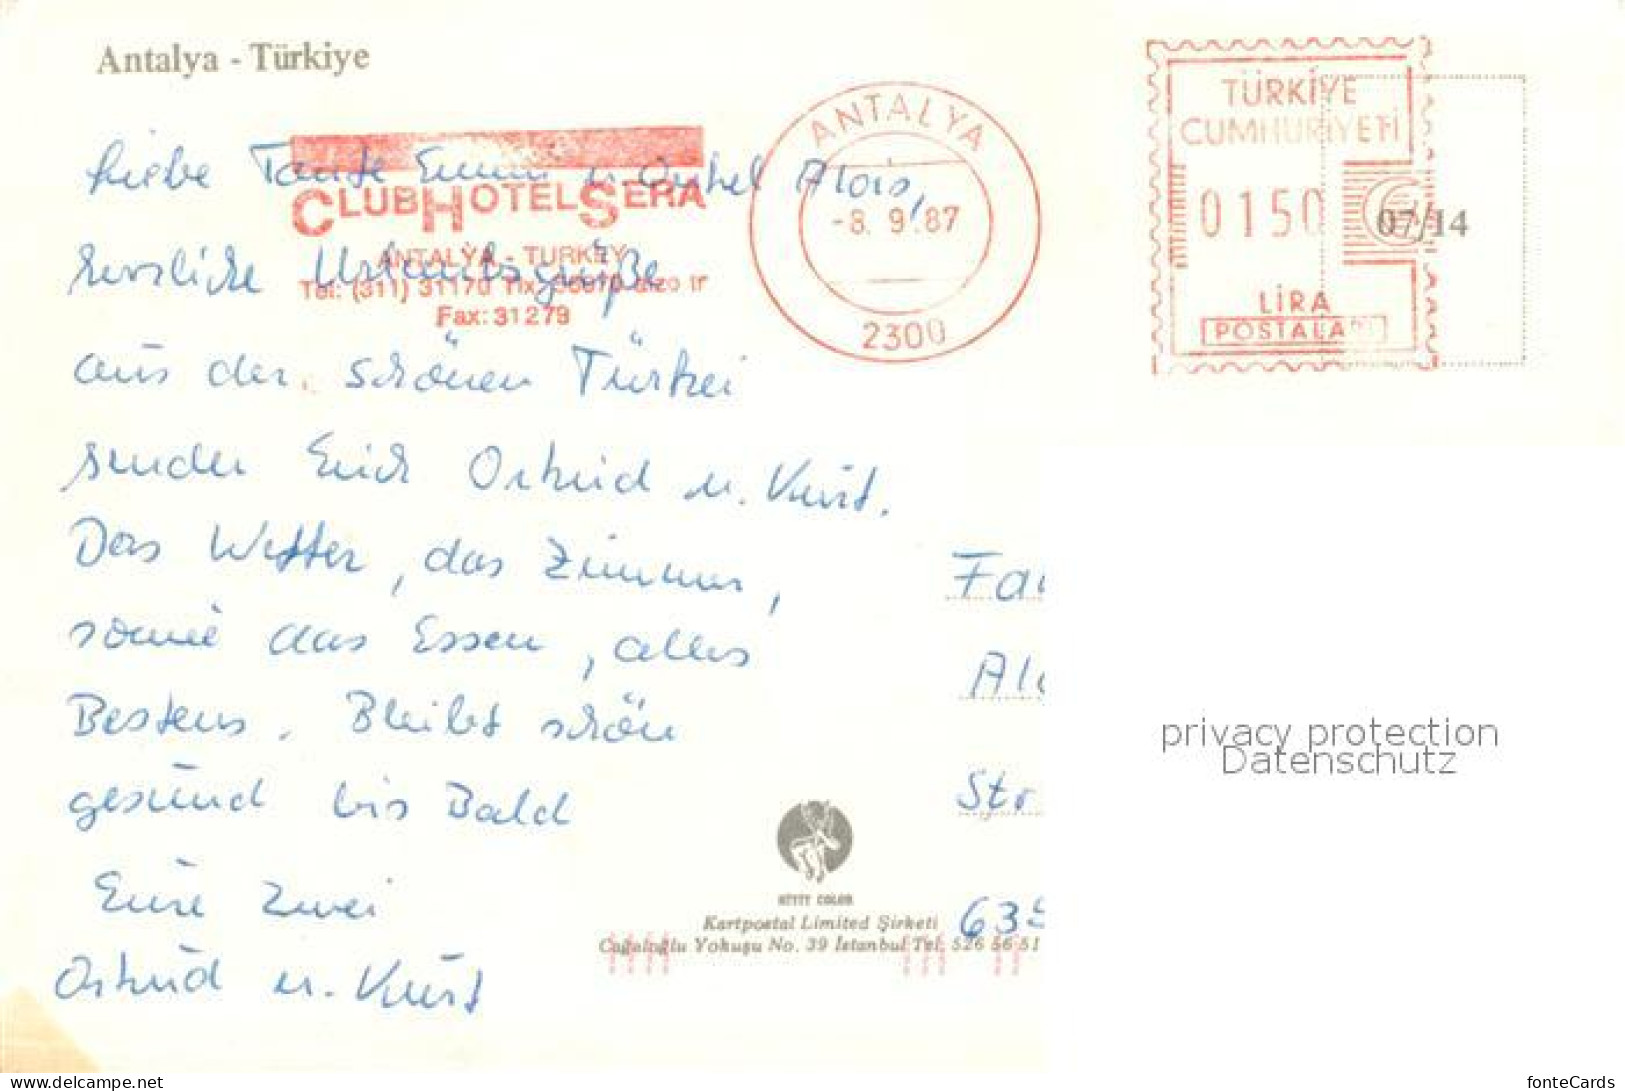 Antalya - Türkiye
Liebe Tante Emmi u. Onkel Alois,
herzliche Urlaubsgrüße
aus der schönen Türkei
senden Euch Ortrud u. Kurt.
Das Wetter, das Zimmer,
sowie das Essen, alles
Bestens. Bleibt schön
gesund bis Bald
Eure Zwei
Ortrud u. Kurt
CLUB HOTEL SERA
ANTALYA - TURKEY
Tel: (311) 31170
Fax: 31279
ANTALYA
-8. 9.87
2300
TÜRKİYE
CUMHURİYETİ
0150
07/14
LİRA
POSTALARI
Fa
Al
Str.
63
privacy protection
Datenschutz
COLOR
Kartpostal Limited Şirketi
Cağaloğlu Yokuşu No. 39 İstanbul Tel. 526 56 51
www.delcampe.net
fonteCards